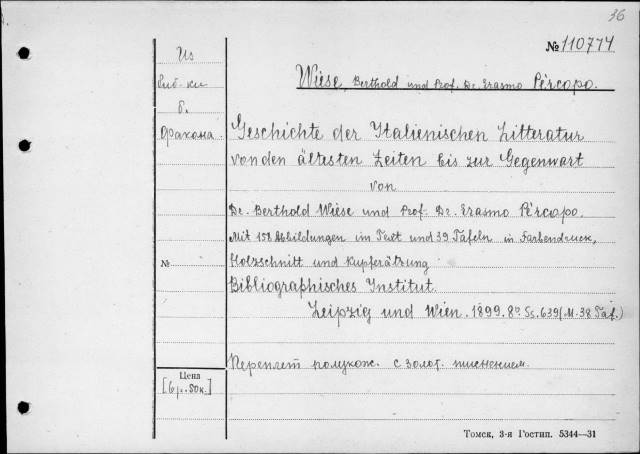 36
№ 110774
Из
биб-ки
б.
Фракона.
Wiese, Berthold und Prof. Dr. Erasmo Pèrcopo.
Geschichte der Italienischen Litteratur
von den ältesten Zeiten bis zur Gegenwart
von
Dr. Berthold Wiese und Prof. Dr. Erasmo Pèrcopo.
Mit 158 Abbildungen im Text und 39 Tafeln in Farbendruck,
№
Holzschnitt und Kupferätzung
Bibliographisches Institut.
Leipzig und Wien. 1899. 8º Ss. 639 (M. 38 Taf.)
Переплет полукож. с золот. тиснением.
Цена
[6 р. 50 к.]
Томск, 3-я Гостип. 5344—31